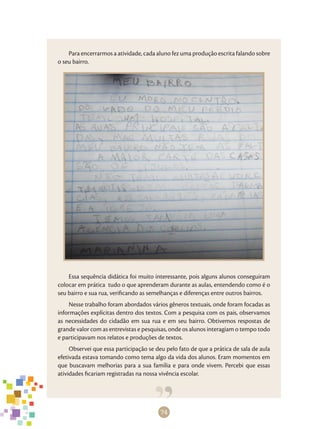 Para encerrarmos a atividade, cada aluno fez uma produção escrita falando sobre
o seu bairro.
MEU BAIRRO
EU MORO NO CENTRO,
DO LADO DO MEU PRÉDIO
TEM UM HOSPITAL.
AS RUAS PRINCIPAIS SÃO
MAS MUITAS RUAS DO
MEU BAIRRO NÃO TEM
A MAIOR PARTE DA CASAS
SÃO DE
TEMOS UMA
AGÊNCIA DO CORREIOS.
MARIANA A
Essa sequência didática foi muito interessante, pois alguns alunos conseguiram
colocar em prática tudo o que aprenderam durante as aulas, entendendo como é o
seu bairro e sua rua, verificando as semelhanças e diferenças entre outros bairros.
Nesse trabalho foram abordados vários gêneros textuais, onde foram focadas as
informações explícitas dentro dos textos. Com a pesquisa com os pais, observamos
as necessidades do cidadão em sua rua e em seu bairro. Obtivemos respostas de
grande valor com as entrevistas e pesquisas, onde os alunos interagiam o tempo todo
e participavam nos relatos e produções de textos.
Observei que essa participação se deu pelo fato de que a prática de sala de aula
efetivada estava tomando como tema algo da vida dos alunos. Eram momentos em
que buscavam melhorias para a sua família e para onde vivem. Percebi que essas
atividades ficariam registradas na nossa vivência escolar.
”
74